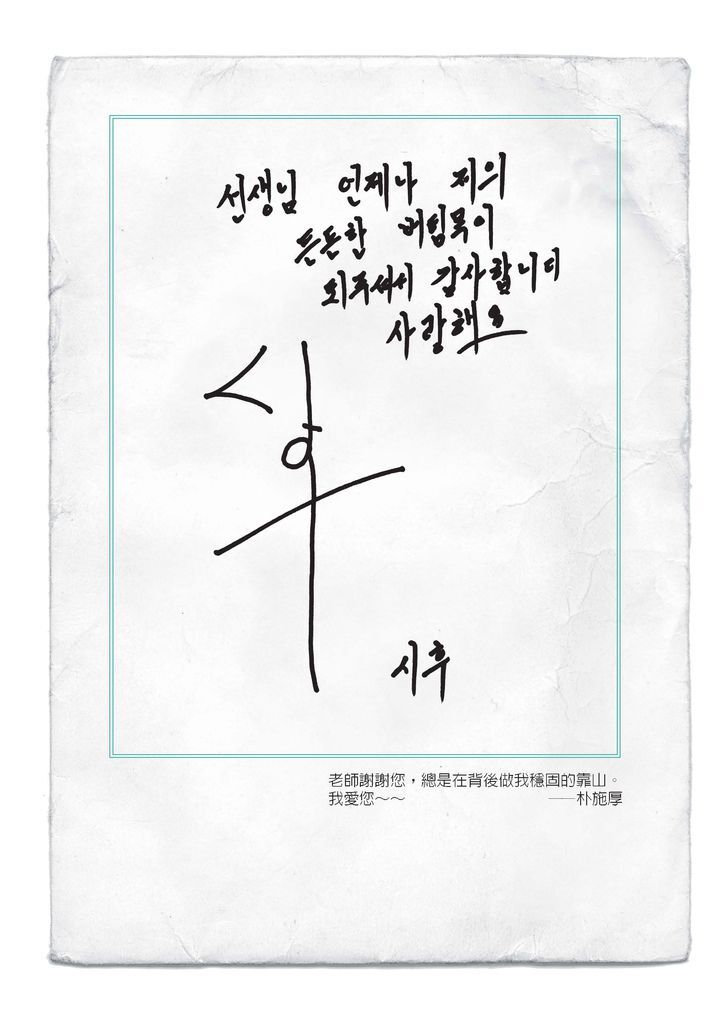 선생님 언제나 저의
든든한 버팀목이
되주셔서 감사합니다
사랑해요
시후
老師謝謝您，總是在背後做我穩固的靠山。
我愛您～～ ——朴施厚